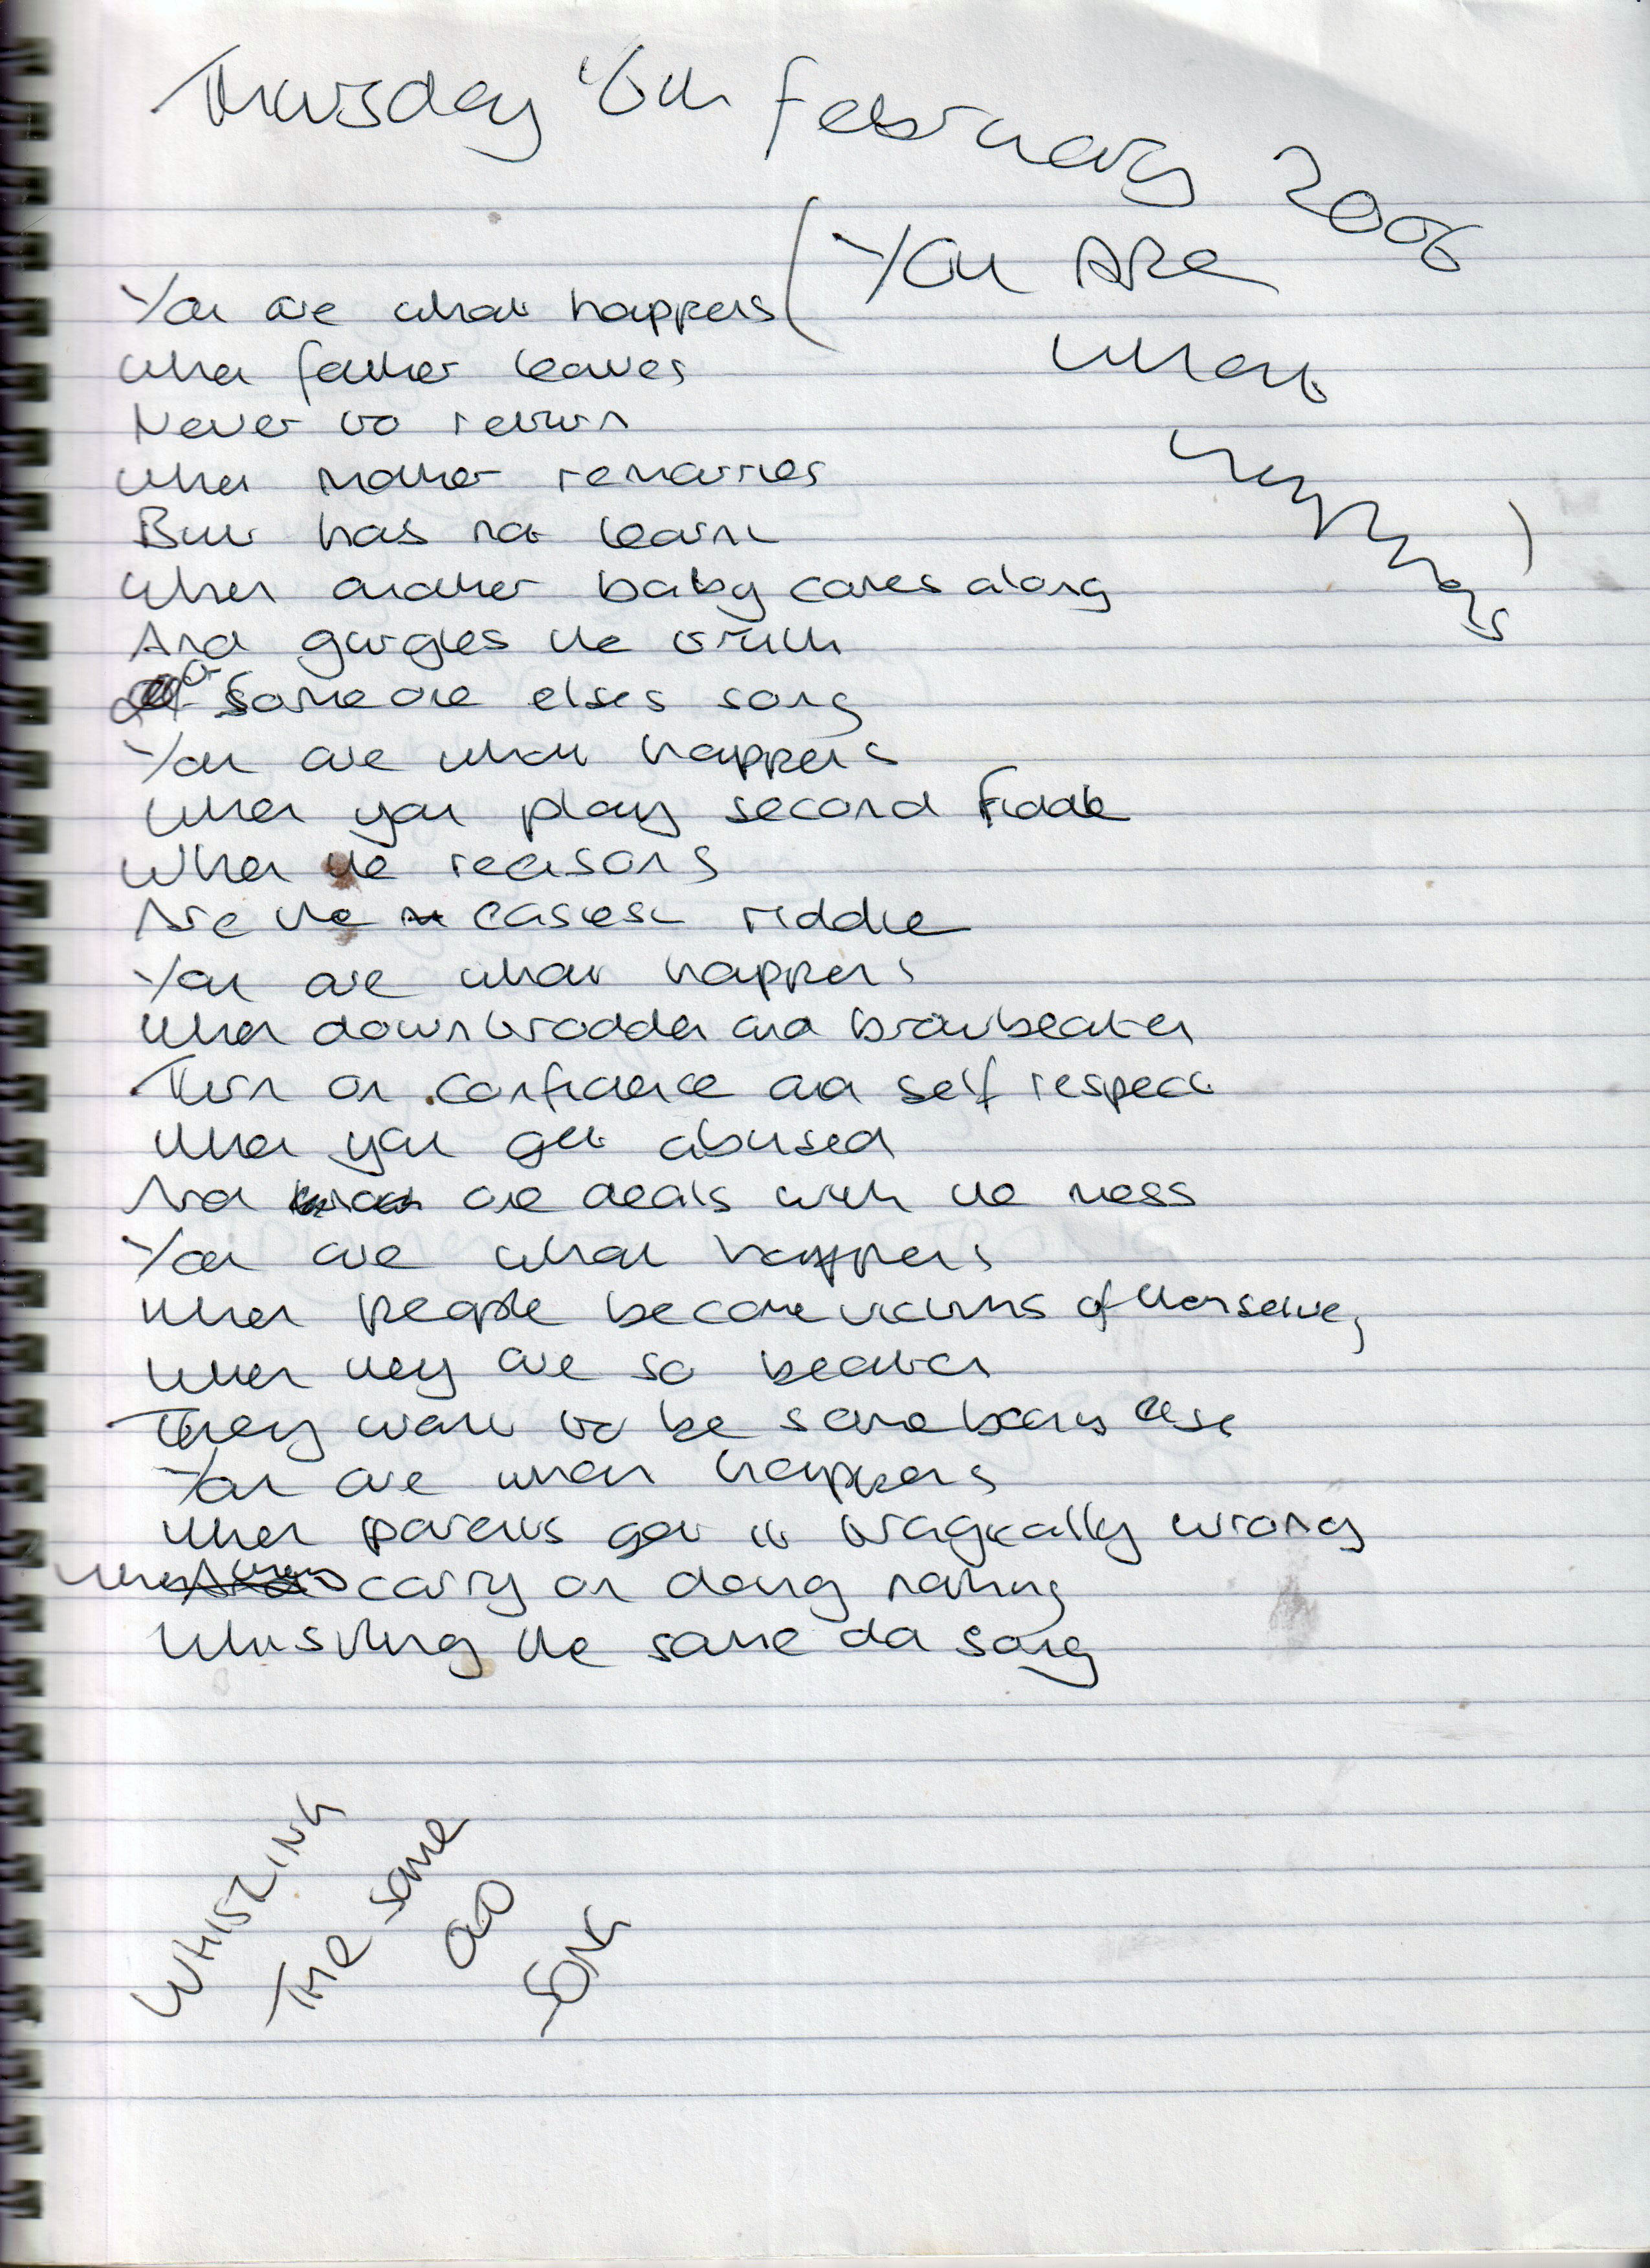 Thursday 16th February 2006
(You ARe
what
happens)
You are what happens
When father leaves
Never to return
When mother remarries
But has not learnt
When another baby comes along
And gurgles the truth
Of someone elses song
You are what happens
When you play second fiddle
When the reasons
Are the easiest riddle
You are what happens
When downtrodden and browbeaten
Turn on confidence and self respect
When you get abused
And one deals with the mess
You are what happens
When people become victims of themselves
When they are so beaten
They want to be somebody else
You are what happens
When parents got it tragically wrong
When carry on doing nothing
Whistling the same old song
WHISLING
THe SAme
OLD
SONG